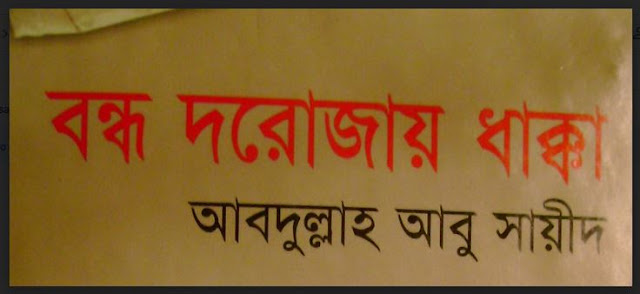 বন্ধ দরোজায় ধাক্কা
আবদুল্লাহ আবু সায়ীদ